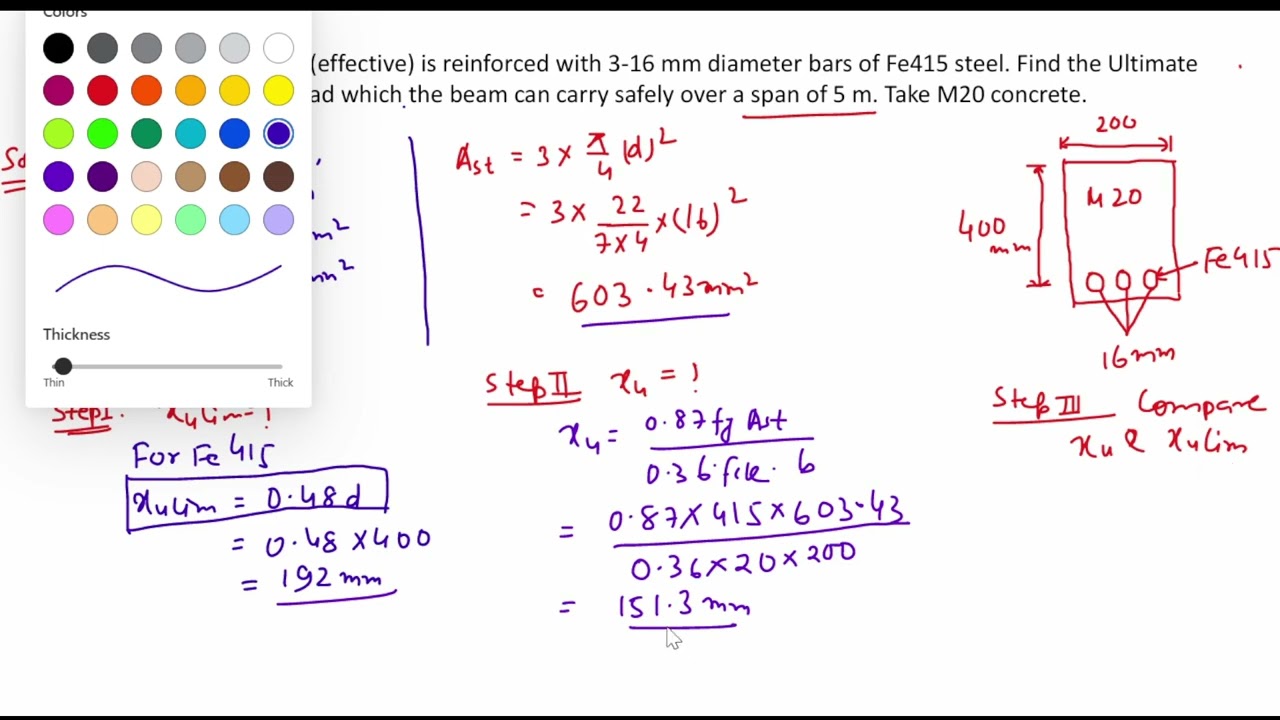 Colors
(effective) is reinforced with 3-16 mm diameter bars of Fe415 steel. Find the Ultimate
ad which the beam can carry safely over a span of 5 m. Take M20 concrete.
Thickness
Thin Thick
Ast = 3 × π/4 (d)²
= 3 × 22/7×4 × (16)²
= 603.43 mm²
200
400 mm
M20
Fe415
16mm
Step I. xulim = ?
For Fe 415
xulim = 0.48 d
= 0.48 × 400
= 192 mm
Step II xu = ?
xu = 0.87 fy Ast / 0.36 fck . b
= 0.87 × 415 × 603.43 / 0.36 × 20 × 200
= 151.3 mm
Step III Compare
xu & xulim